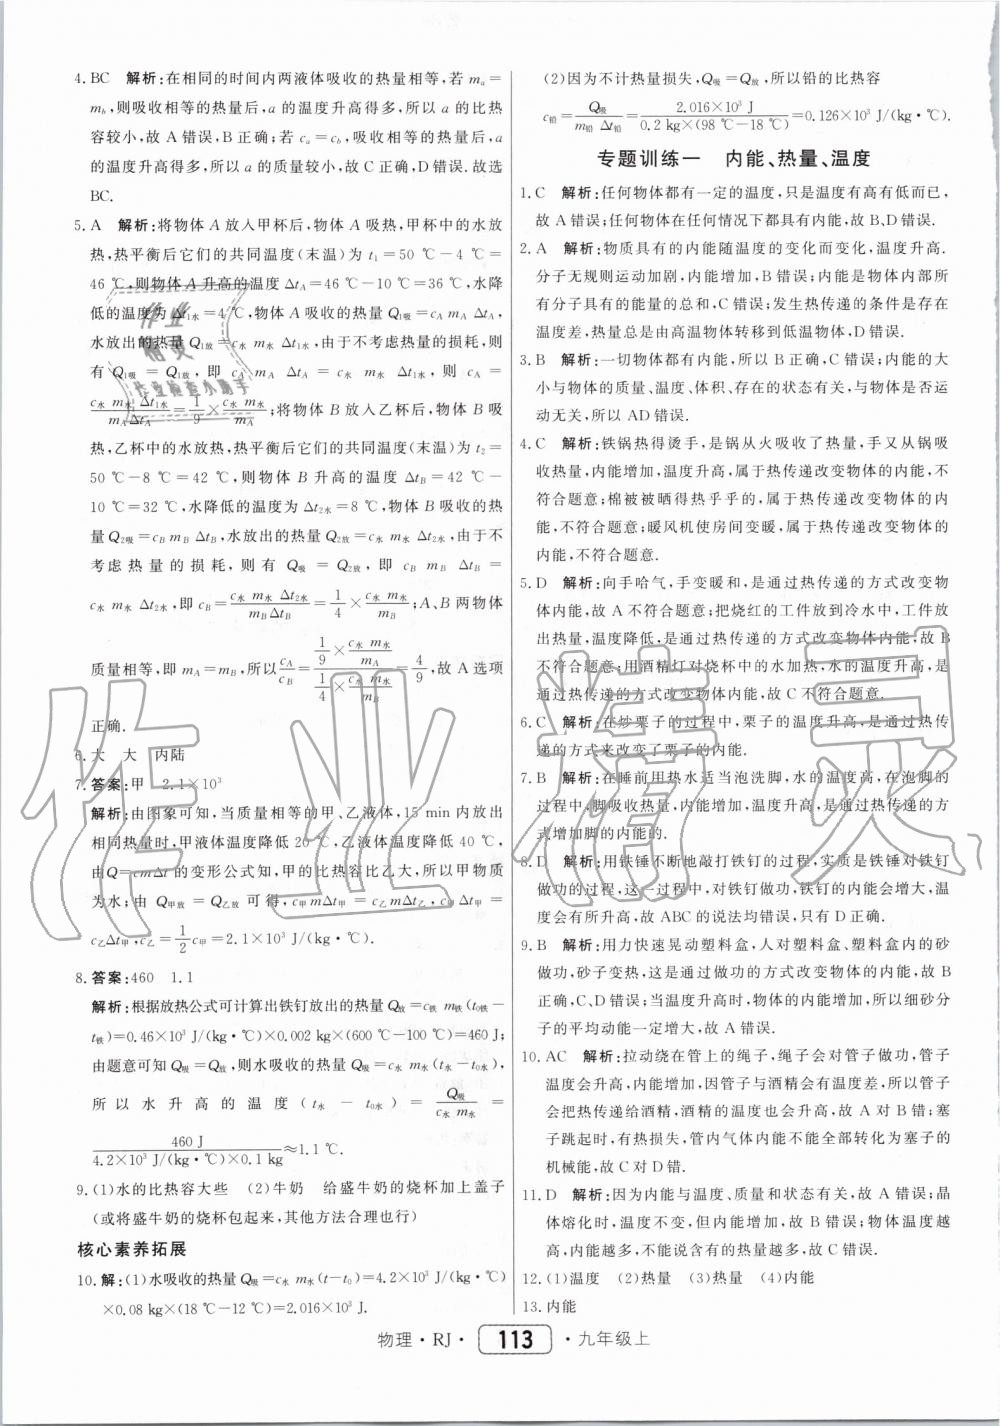 4. BC 解析:在相同的时间内两液体吸收的热量相等,若 mₐ=
m_b,则吸收相等的热量后,a 的温度升高得多,所以 a 的比热
容较小,故 A 错误,B 正确;若 cₐ=c_b,吸收相等的热量后,a
的温度升高得多,所以 a 的质量较小,故 C 正确,D 错误.故选
BC.
5. A 解析:将物体 A 放入甲杯后,物体 A 吸热,甲杯中的水放
热,热平衡后它们的共同温度(末温)为 t₁=50 ℃-4 ℃=
46 ℃,则物体 A 升高的温度 Δt_A=46 ℃-10 ℃=36 ℃,水降
低的温度为 Δt₁水=4 ℃,物体 A 吸收的热量 Q₁吸=c_A m_A Δt_A,
水放出的热量 Q₁放=c水 m水 Δt₁水,由于不考虑热量的损耗,则
有 Q₁吸=Q₁放,即 c_A m_A Δt_A=c水 m水 Δt₁水,则 c_A=
c水 m水 Δt₁水/(m_A Δt_A)=1/9×c水 m水/m_A;将物体 B 放入乙杯后,物体 B 吸
热,乙杯中的水放热,热平衡后它们的共同温度(末温)为 t₂=
50 ℃-8 ℃=42 ℃,则物体 B 升高的温度 Δt_B=42 ℃-
10 ℃=32 ℃,水降低的温度为 Δt₂水=8 ℃,物体 B 吸收的热
量 Q₂吸=c_B m_B Δt_B,水放出的热量 Q₂放=c水 m水 Δt₂水,由于不
考虑热量的损耗,则有 Q吸=Q₂放,即 c_B m_B Δt_B=
c水 m水 Δt₂水,即 c_B=c水 m水 Δt₂水/(m_B Δt_B)=1/4×c水 m水/m_B;A、B 两物体
质量相等,即 m_A=m_B,所以 c_A/c_B=(1/9×c水 m水/m_A)/(1/4×c水 m水/m_B)=4/9,故 A 选项
正确.
6. 大 大 内陆
7. 答案:甲 2.1×10³
解析:由图象可知,当质量相等的甲、乙液体,15 min 内放出
相同热量时,甲液体温度降低 20 ℃,乙液体温度降低 40 ℃,
由Q=cmΔt的变形公式知,甲的比热容比乙大,所以甲物质
为水;由 Q甲放=Q乙放 可得,c甲mΔt甲=c乙mΔt乙,c甲Δt甲=
c乙Δt乙,c乙=1/2c甲=2.1×10³ J/(kg·℃).
8. 答案:460 1.1
解析:根据放热公式可计算出铁钉放出的热量 Q放=c铁 m铁(t₀铁-
t铁)=0.46×10³ J/(kg·℃)×0.002 kg×(600 ℃-100 ℃)=460 J;
由题意可知 Q吸=Q放,则水吸收的热量 Q吸=c水 m水(t水-t₀水),
所以水升高的温度(t水-t₀水)=Q吸/(c水 m水)=
460 J/(4.2×10³ J/(kg·℃)×0.1 kg)≈1.1 ℃.
9. (1)水的比热容大些 (2)牛奶 给盛牛奶的烧杯加上盖子
(或将盛牛奶的烧杯包起来,其他方法合理也行)
核心素养拓展
10. 解:(1)水吸收的热量 Q吸=c水 m水(t-t₀)=4.2×10³ J/(kg·℃)
×0.08 kg×(18 ℃-12 ℃)=2.016×10³ J.
(2)因为不计热量损失,Q吸=Q放,所以铅的比热容
c铅=Q吸/(m铅 Δt铅)=2.016×10³ J/(0.2 kg×(98 ℃-18 ℃))=0.126×10³ J/(kg·℃).
专题训练一 内能、热量、温度
1. C 解析:任何物体都有一定的温度,只是温度有高有低而已,
故 A 错误;任何物体在任何情况下都具有内能,故 B、D 错误.
2. A 解析:物质具有的内能随温度的变化而变化,温度升高.
分子无规则运动加剧,内能增加,B 错误;内能是物体内部所
有分子具有的能量的总和,C 错误;发生热传递的条件是存在
温度差,热量总是由高温物体转移到低温物体,D 错误.
3. B 解析:一切物体都有内能,所以 B 正确,C 错误;内能的大
小与物体的质量、温度、体积、存在的状态有关,与物体是否运
动无关,所以 AD 错误.
4. C 解析:铁锅热得烫手,是锅从火吸收了热量,手又从锅吸
收热量,内能增加,温度升高,属于热传递改变物体的内能,不
符合题意;棉被被晒得热乎乎的,属于热传递改变物体的内
能,不符合题意;暖风机使房间变暖,属于热传递改变物体的
内能,不符合题意.
5. D 解析:向手哈气,手变暖和,是通过热传递的方式改变物
体内能,故 A 不符合题意;把烧红的工件放到冷水中,工件放
出热量,温度降低,是通过热传递的方式改变物体内能,故 B
不符合题意;用酒精灯对烧杯中的水加热,水的温度升高,是
通过热传递的方式改变物体内能,故 C 不符合题意.
6. C 解析:在炒栗子的过程中,栗子的温度升高,是通过热传
递的方式来改变了栗子的内能.
7. B 解析:在睡前用热水适当泡洗脚,水的温度高,在泡脚的
过程中,脚吸收热量,内能增加,温度升高,是通过热传递的方
式增加脚的内能的.
8. D 解析:用铁锤不断地敲打铁钉的过程,实质是铁锤对铁钉
做功的过程,这一过程中,对铁钉做功,铁钉的内能会增大,温
度会升高,故 ABC 的说法均错误,只有 D 正确.
9. B 解析:用力快速晃动塑料盒,人对塑料盒、塑料盒内的砂
做功,砂子变热,这是通过做功的方式改变物体的内能,故 B
正确,C、D 错误;当温度升高时,物体的内能增加,所以细砂分
子的平均动能一定增大,故 A 错误.
10. AC 解析:拉动绕在管上的绳子,绳子会对管子做功,管子
温度会升高,内能增加,因管子与酒精会有温度差,所以管子
会把热传递给酒精,酒精的温度会升高,故 A 对 B 错;塞
子跳起时,有热损失,管内气体内能不能全部转化为塞子的
机械能,故 C 对 D 错.
11. D 解析:因为内能与温度、质量和状态有关,故 A 错误;晶
体熔化时,温度不变,但内能增加,故 B 错误;物体温度越
高,内能越大,不能说含有的热量越多,故 C 错误.
12. (1)温度 (2)热量 (3)热量 (4)内能
13. 内能
物理·RJ· 113 ·九年级上
作业精灵
作业
精灵
作业检查小助手